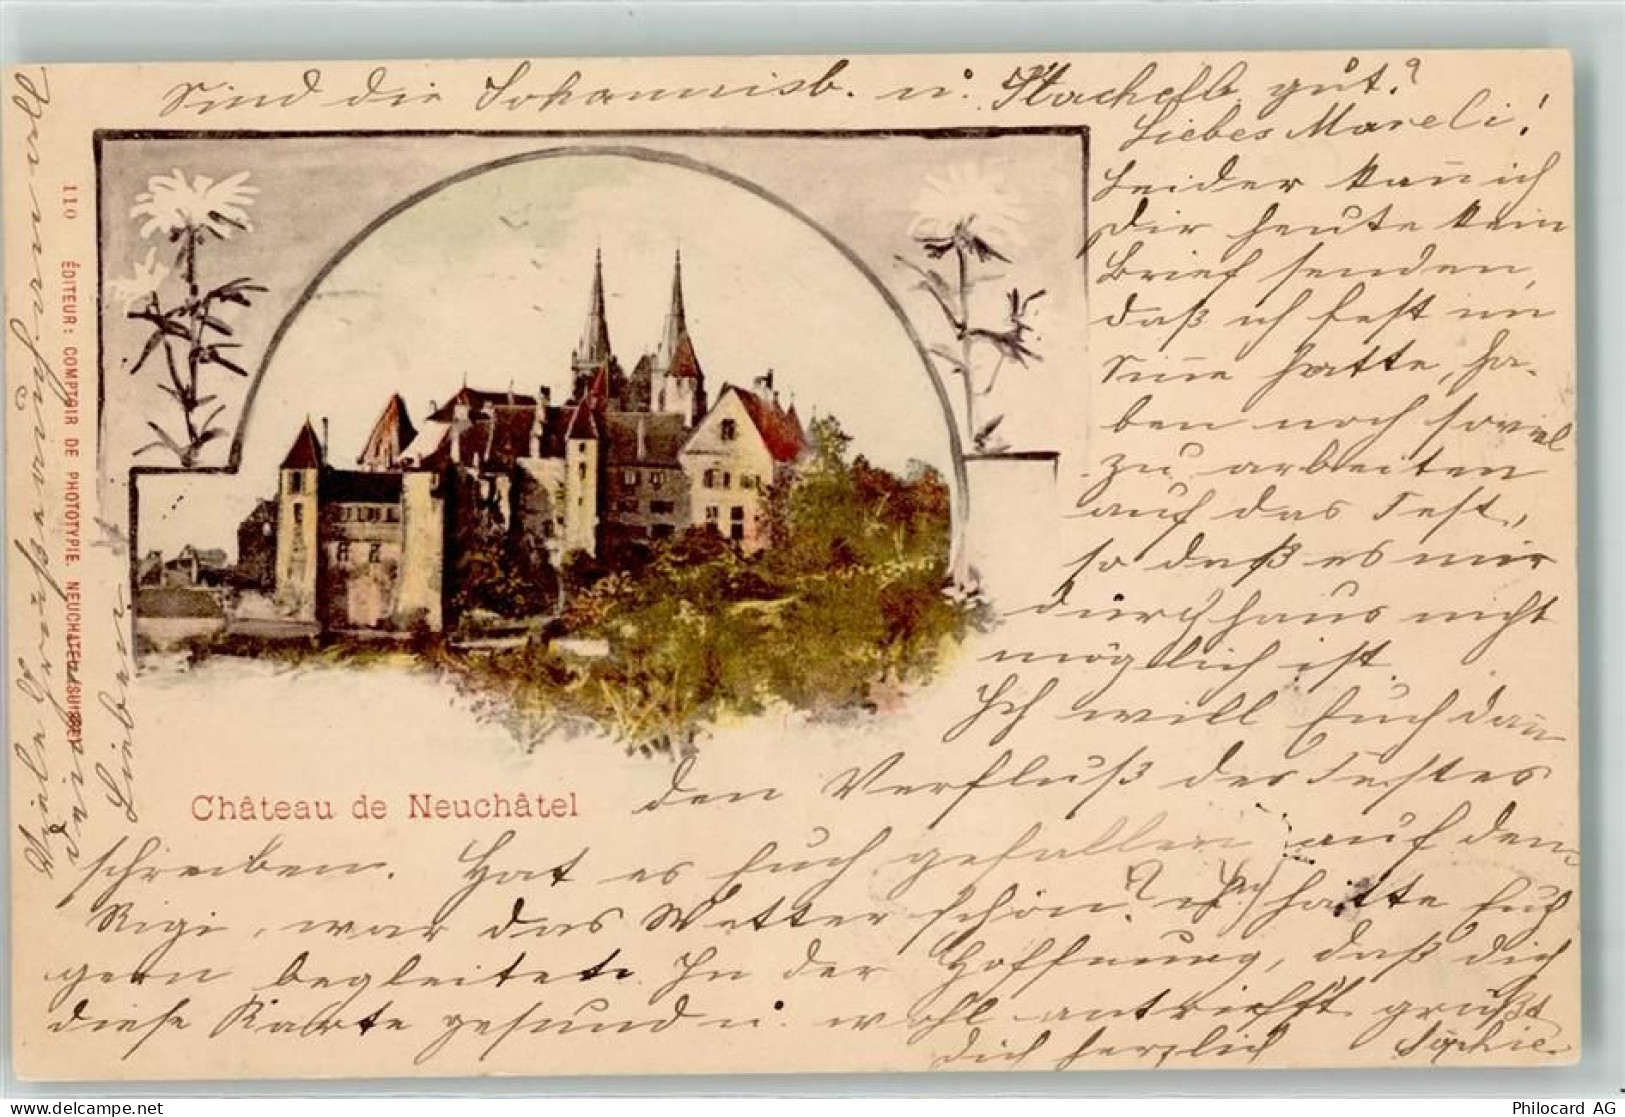 Sind die Johannisb. u. Stachelb. gut?
Liebes Mareli!
Leider kann ich
Dir heute kein
Brief senden,
daß ich fest im
Sinne hatte, ha-
ben noch soviel
zu arbeiten
auf das Fest,
so daß es mir
durchaus nicht
möglich ist.
Ich will Euch dann
den Verfluß des Festes
schreiben. Hat es Euch gefallen auf dem
Rigi, war das Wetter schön? ich hätte Euch
gern begleitet. In der Hoffnung, daß dich
diese Karte gesund u. wohl antrifft grüßt
dich herzlich Sophie.
Château de Neuchâtel
110 ÉDITEUR: COMPTOIR DE PHOTOTYPIE. NEUCHATEL (SUISSE)
Viele Grüße
Lieben
Philocard AG